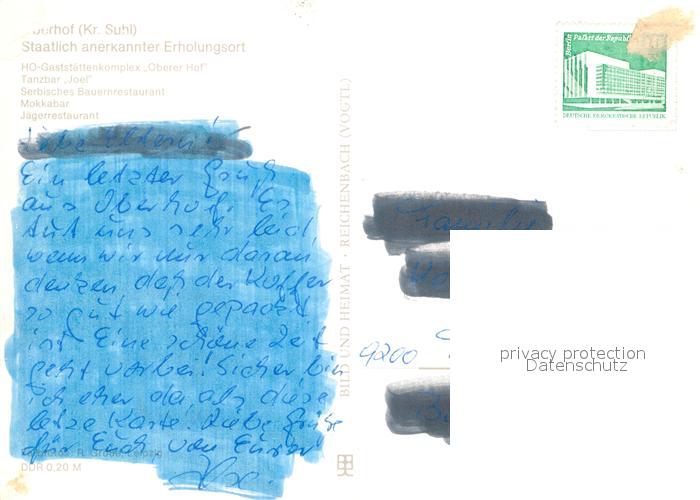 Oberhof (Kr. Suhl)
Staatlich anerkannter Erholungsort
HO-Gaststättenkomplex „Oberer Hof"
Tanzbar „Joel"
Serbisches Bauernrestaurant
Mokkabar
Jägerrestaurant
Liebe Eltern!
Ein letzter Gruß
aus Oberhof. Es
tut uns sehr leid,
wenn wir nur daran
denken daß der Koffer
so gut wie gepackt
ist. Eine schöne Zeit
geht vorbei! Sicher bin
ich eher da als diese
letzte Karte! Liebe Grüße
für Euch von Eurer
R. Große, Leipzig
DDR 0,20 M
BILD UND HEIMAT · REICHENBACH (VOGTL)
Berlin Palast der Republik
DEUTSCHE DEMOKRATISCHE REPUBLIK
Familie
9200
privacy protection
Datenschutz